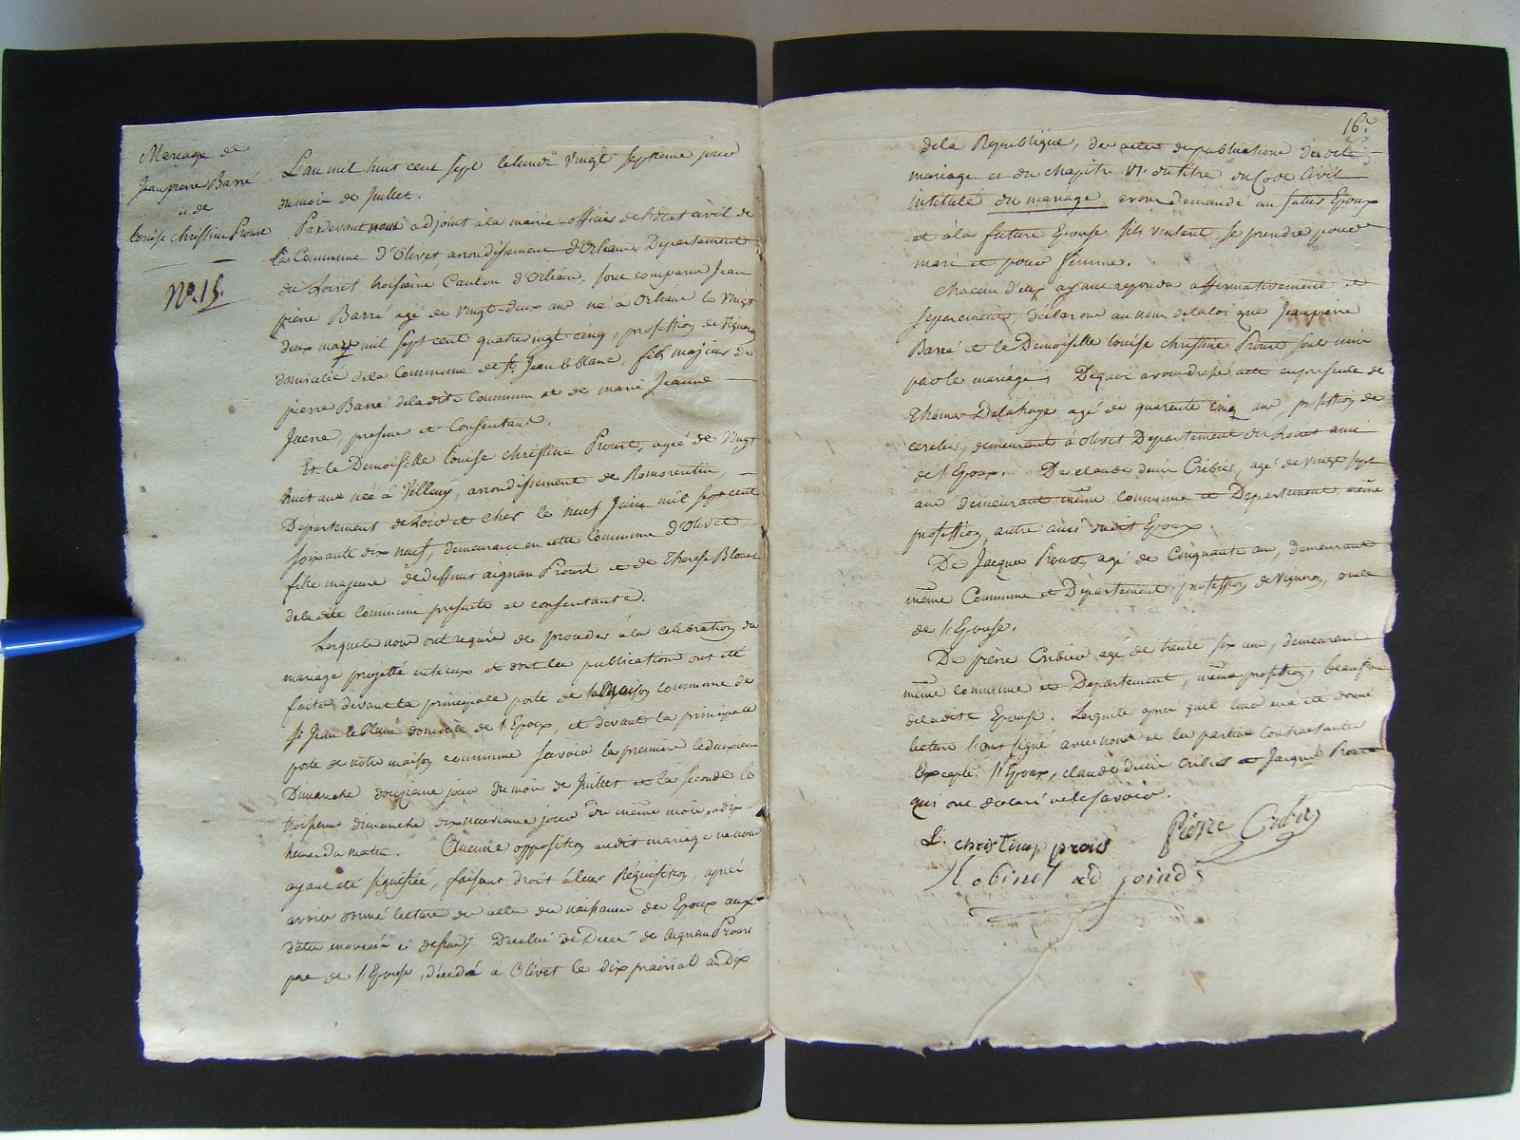 Mariage de
Jean pierre Barré
et de
Louise christine Proust
No. 15.
L'an mil huit cent sept le lundi vingt septieme jour
du mois de Juillet.
Pardevant nous adjoint a la mairie officier de l'état civil de
la Commune d'Olivet, arrondissement d'Orleans Departement
du Loiret troisieme Canton d'Orléans, sont comparus Jean
pierre Barré agé de vingt-deux ans né a Orléans le vingt
deux may mil sept cent quatre vingt cinq, profession de vigneron
domicilié dela Commune de St Jean le blanc, fils majeur de
pierre Barré deladite Commune et de marie Jeanne
present et Consentant.
Et la Demoiselle Louise christine Proust, agée de vingt
huit ans née à Villeny, arrondissement de Romorentin,
Departement de Loir et cher le neuf Juin mil sept cent
soixante dix neuf, demeurant en cette Commune d'Olivet
fille majeure de deffunt aignan Proust et de Therese
deladite Commune presente et consentante.
Lesquels nous ont requis de proceder à la celebration du
mariage projetté entr'eux et dont les publications ont été
faites devant la principale porte de la maison commune de
St Jean le blanc domicile de l'Epoux, et devant la principale
porte de notre maison commune savoir la premiere le
Dimanche douzieme jour du mois de Juillet et la seconde le
troisieme dimanche dix neuvieme jour du même mois, a dix
heures du matin. Aucune opposition audit mariage ne nous
ayant été signifiée, faisant droit à leur Réquisition, après
avoir donné lecture des actes de naissance des Epoux aux
dates enoncées ci dessus, De celui de Décès de Aignan Proust
pere de l'Epouse, décédé a Olivet le dix prairial an dix
16.
dela Republique, des actes de publications dudit
mariage et du chapitre VI du titre du Code Civil
intitulé du mariage avons demandé au futur Epoux
et à la future Epouse s'ils veulent se prendre pour
mari et pour femme.
Chacun d'eux ayant repondu affirmativement et
separement, déclarons au nom de la loi que Jean pierre
Barré et la Demoiselle Louise christine Proust sont unis
par le mariage; De quoi avons dressé acte en presence de
Thomas Delahaye agé de quarante cinq ans, profession de
demeurant à olivet Departement du Loiret ami
de l'Epoux. De claude Cribier, agé de vingt sept
ans demeurant même commune et Departement, même
profession, autre ami dudit Epoux.
De Jacques Proust, agé de Cinquante ans, demeurant
même Commune et Departement, profession de Vigneron, oncle
de l'Epouse.
De pierre Cribier agé de trente six ans, demeurant
même commune et Departement, même profession, beaufrere
deladite Epouse. Lesquels après qu'il leur en a été donné
lecture l'ont signé avec nous et les parties contractantes
Excepté l'Epoux, claude Cribier et Jacques Proust
qui ont declaré ne le savoir.
L. christine prous Pierre Cribier
Robinet adjoind